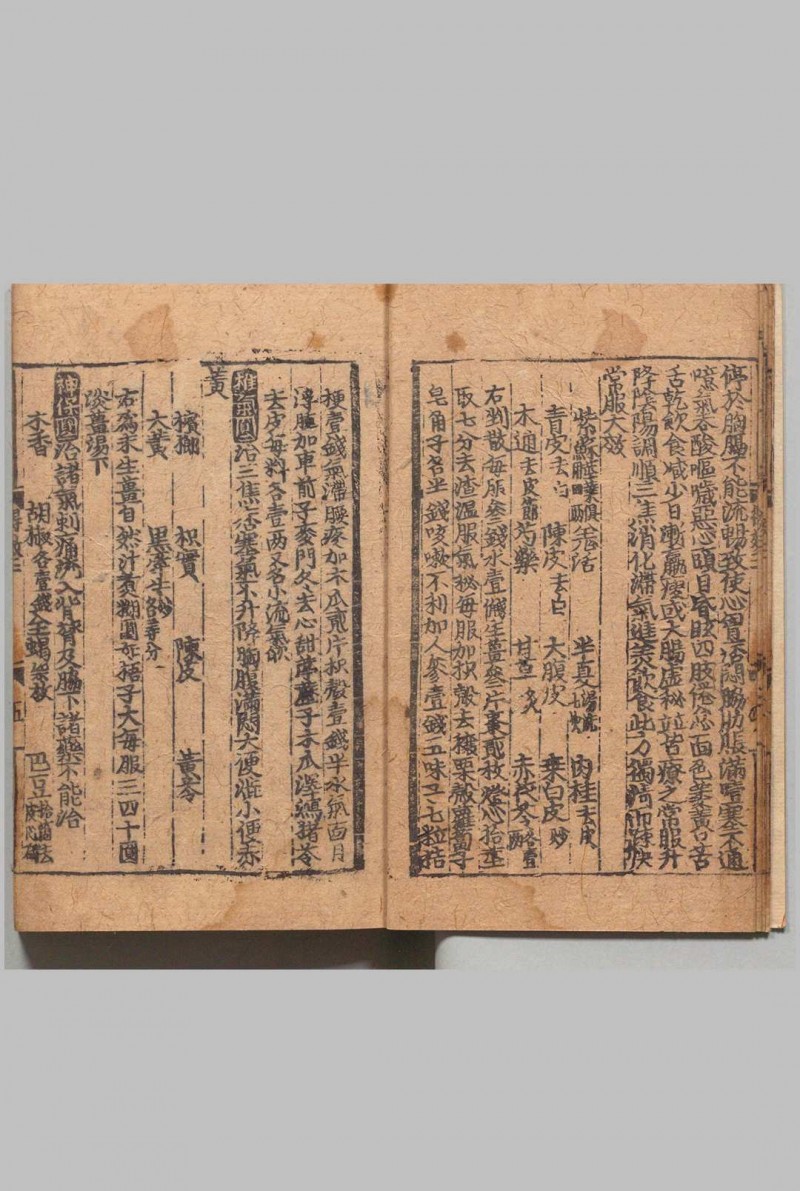 停於胸膈不能流暢致使心胃痞悶脇肋脹滿噎塞不通
噫氣吞酸嘔噦惡心頭目昏眩四肢倦怠面色萎黃口苦
舌乾飲食減少日漸羸瘦或大腸虛秘並皆療之常服升
降陰陽調順三焦消化滯氣進美飲食此方獨活
常服大效
紫蘇 獨活 半夏湯洗七次 肉桂去皮
青皮去白 陳皮去白 大腹皮 桑白皮炒
木通去皮節 芍藥 甘草炙 赤茯苓各壹兩
右剉散每服叄錢水壹盞生薑叄片棗貳枚燈心拾莖
取七分去渣溫服氣秘每服加枳殼去穰粟殼蘿蔔子
皂角子各半錢咳嗽不利加人參壹錢五味三七粒桔
梗壹錢氣滯腰疼加木瓜貳片枳殼壹錢半水氣面目
浮腫加車前子麥門冬去心甜葶藶子木瓜澤瀉猪苓
去皮每料各壹兩又名小流氣飲
推氣圓治三焦痞塞氣不升降胸膈滿悶大便澁小便赤
黃
檳榔 枳實 陳皮 黃芩
大黃 黑牽牛炒各等分
右爲末生薑自然汁煮糊圓如梧子大每服三四十圓
淡薑湯下
神保圓治諸氣刺痛流入背膂及脇下諸藥不能治
木香 胡椒各壹錢 全蝎柒枚 巴豆拾箇去